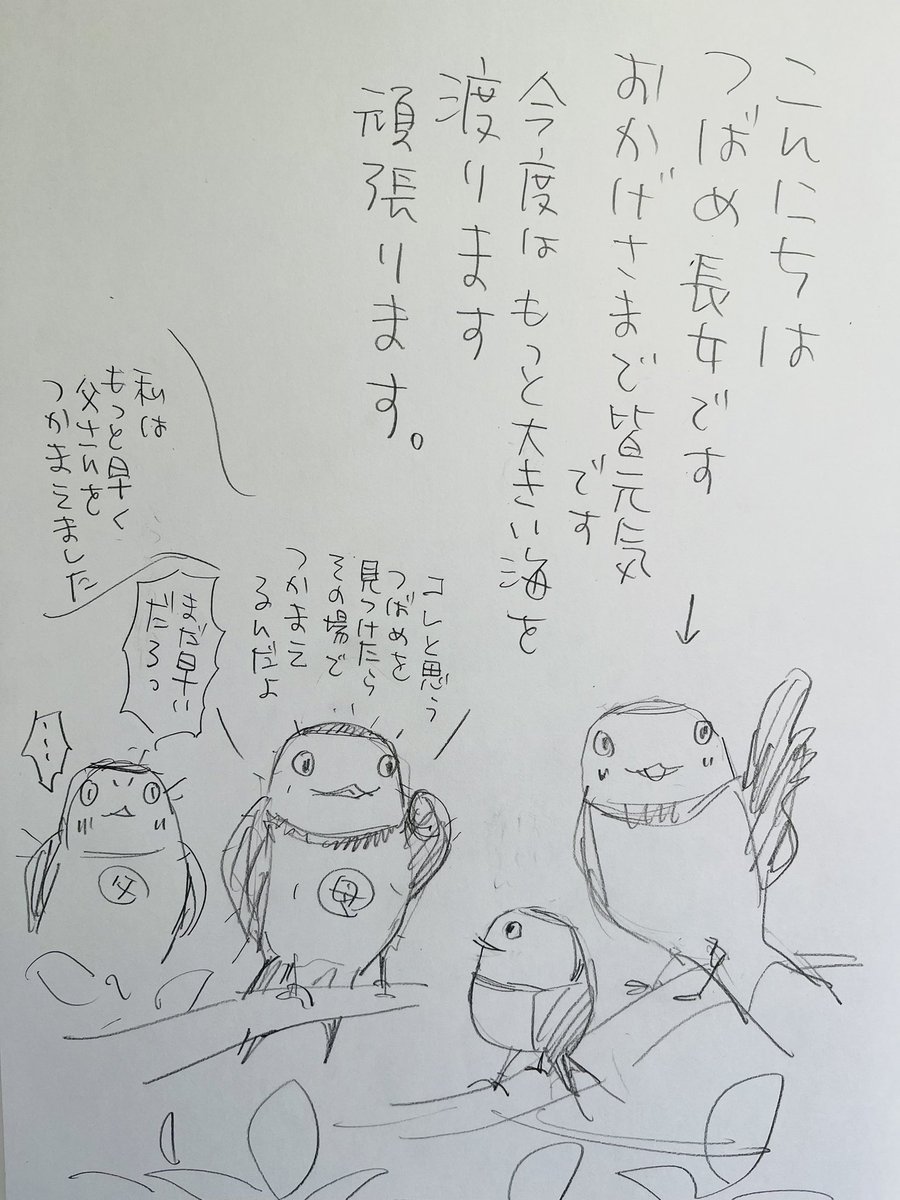 こんにちは
つばめ長女です
おかげさまで皆元気
です
今度はもっと大きい海を
渡ります
頑張ります。
コレと思う
つばめを
見つけたら
その場で
つかまえ
るんだよ
まだ早い
だろっ
私は
もっと早く
父さんを
つかまえました
…
父
母